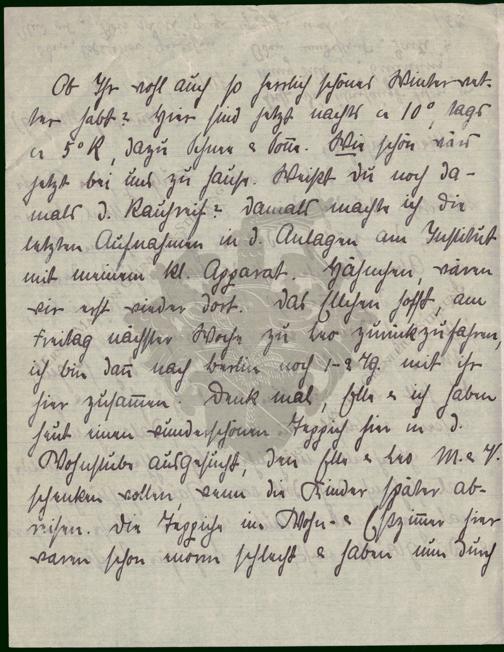 Ob Ihr wohl auch so herrlich schönes Winterwet-
ter habt? Hier sind jetzt nachts ca 10°, tags
ca 5° R, dazu Schnee & Sonne. Wie schön wär's
jetzt bei uns zu Hause. Weißt Du noch da-
mals d. Rauhreif? Damals machte ich die
letzten Aufnahmen in d. Anlagen am Institut
mit meinem kl. Apparat. wären
wir erst wieder dort. Das Ellchen hofft, am
Freitag nächster Woche zu Leo zurückzufahren,
ich bin dann nach Berlin noch 1-2 Tg. mit ihr
hier zusammen. Denk mal, Elle & ich haben
heut einen wunderschönen Teppich hier in d.
Wohnstube ausgesucht, den Elle & Leo M. & V.
schenken wollen, wenn die Kinder später ab-
reisen. Die Teppiche im Wohn- & Eßzimmer hier
waren schon enorm schlecht & haben nun durch